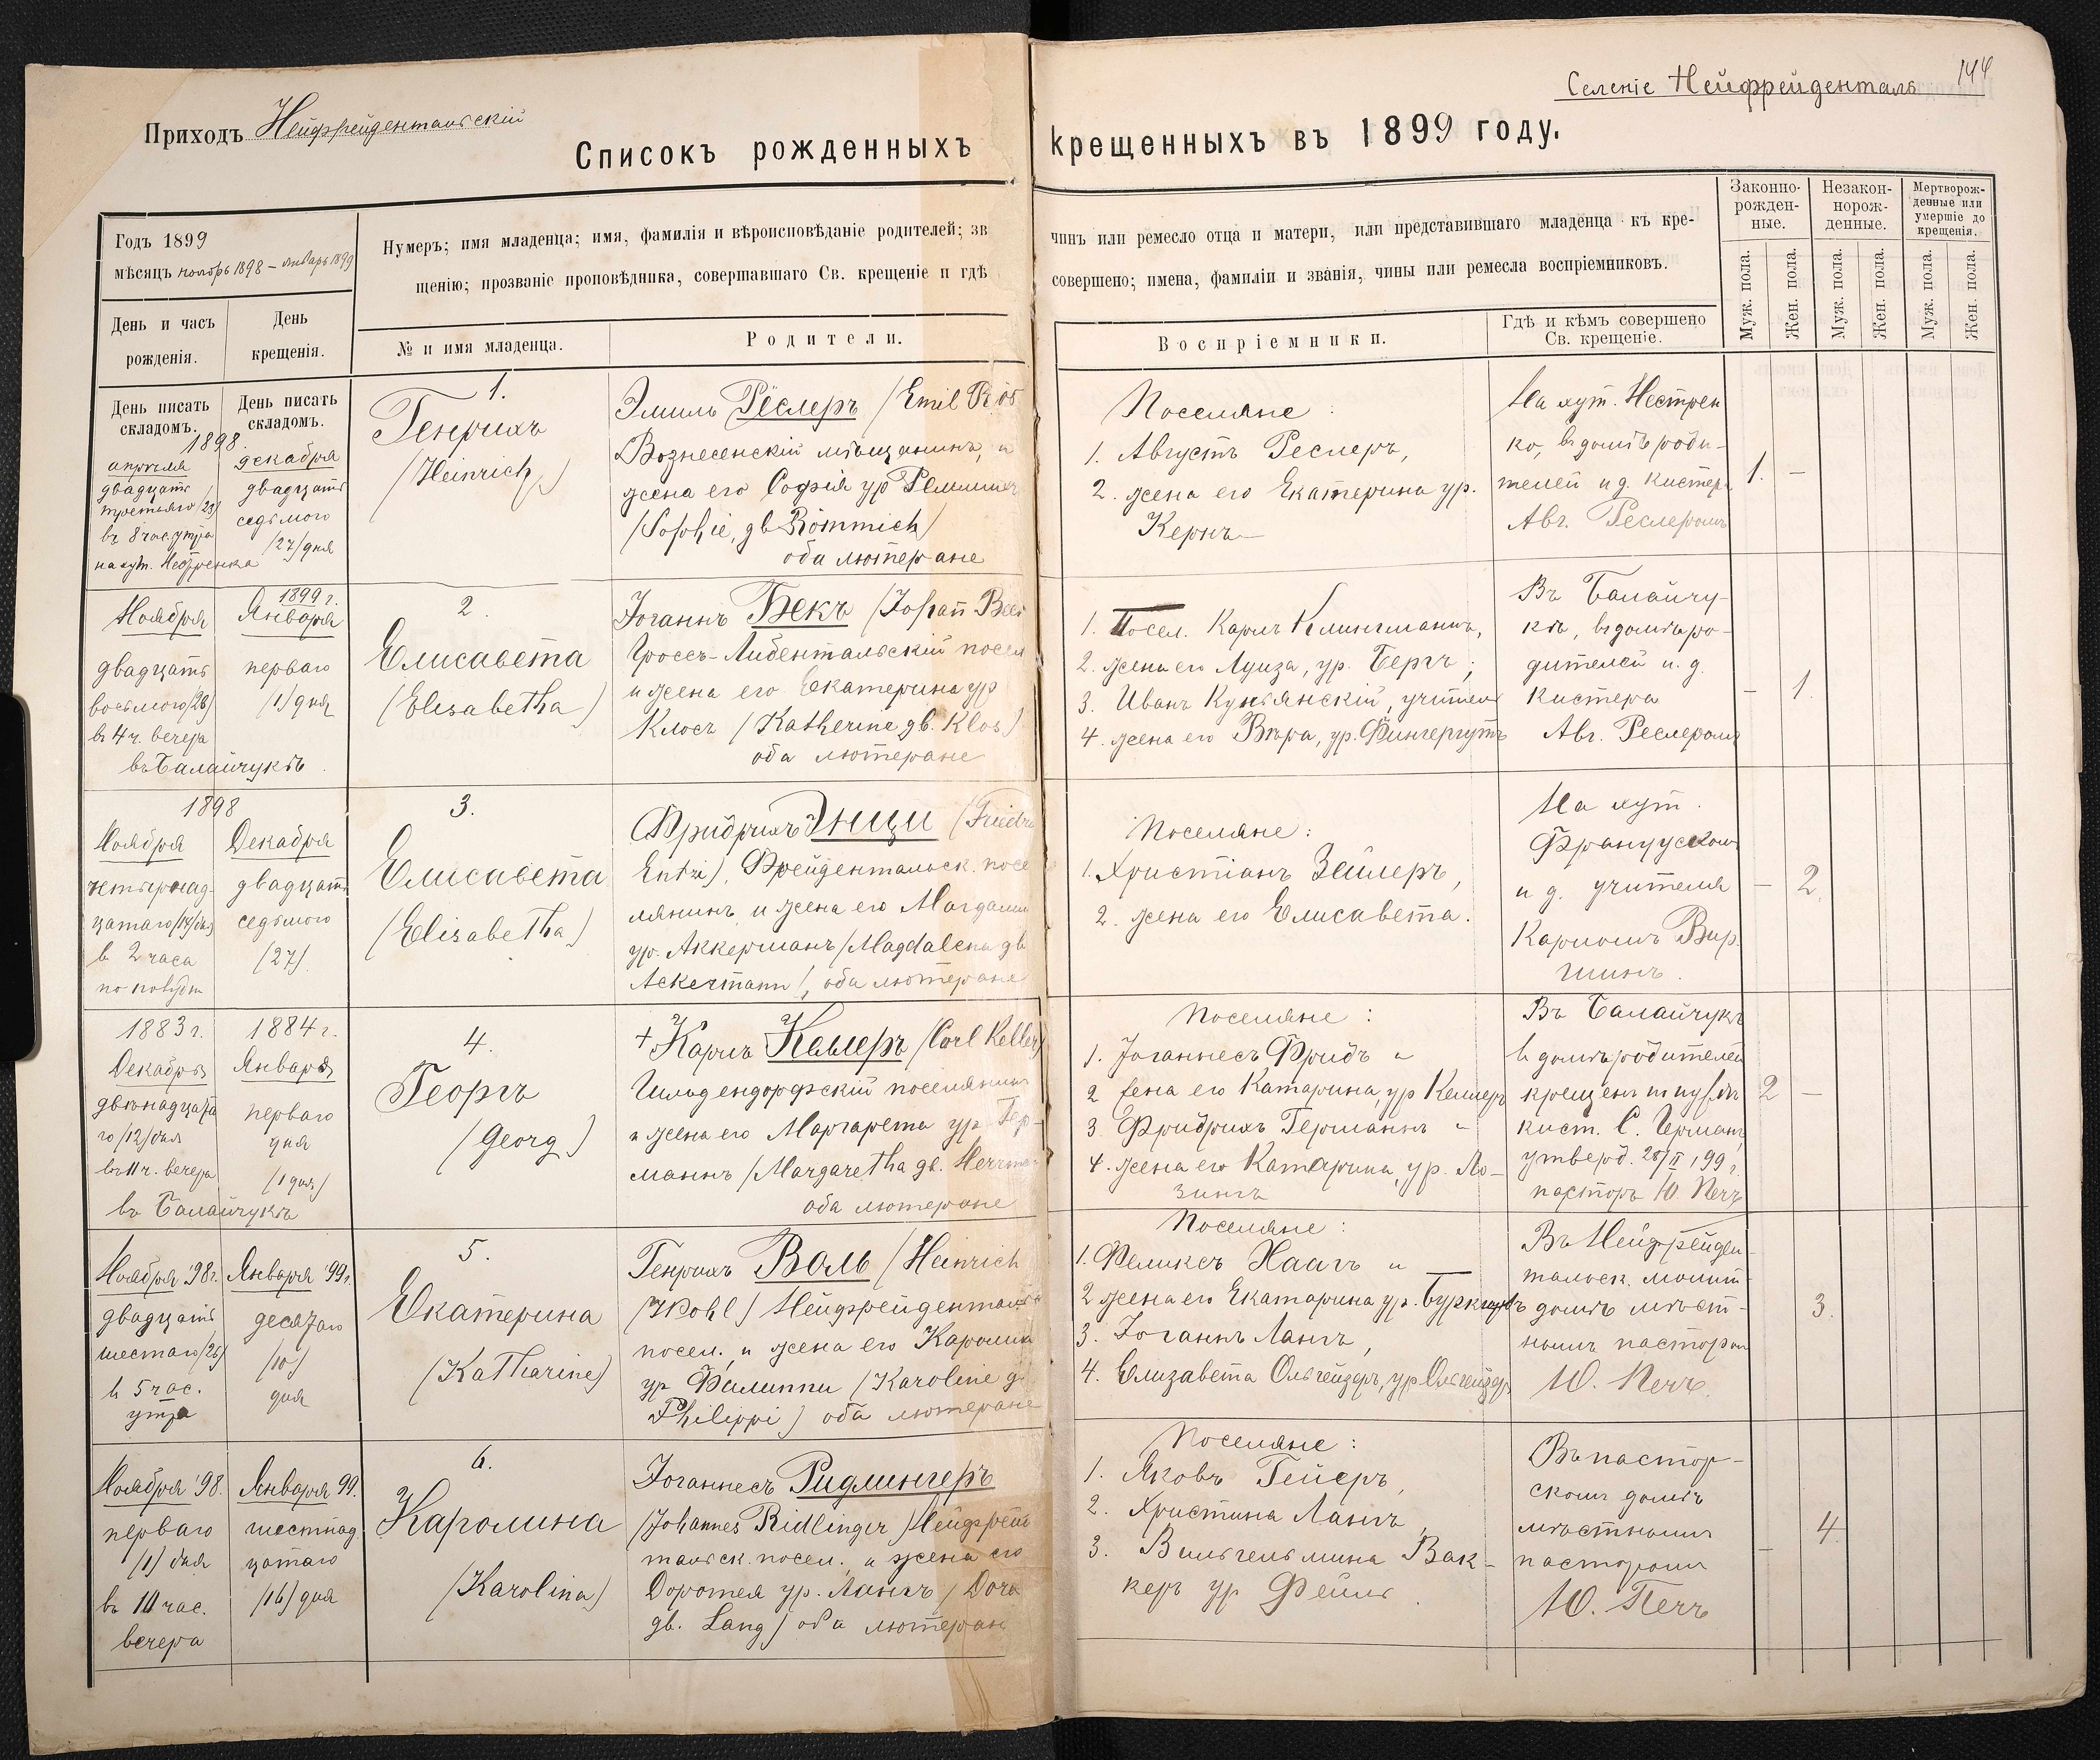 Селеніе Нейфрейденталь 144
Приходъ Нейфрейдентальскій
Списокъ рожденныхъ крещенныхъ въ 1899 году.
Годъ 1899
мѣсяцъ ноябрь 1898 – январь 1899
День и часъ рожденія.
День крещенія.
Нумеръ; имя младенца; имя, фамилія и вѣроисповѣданіе родителей; зв
щенію; прозваніе проповѣдника, совершавшаго Св. крещеніе и гдѣ
чинъ или ремесло отца и матери, или представившаго младенца къ кре-
совершено; имена, фамиліи и званія, чины или ремесла воспріемниковъ.
№ и имя младенца.
Родители.
Воспріемники.
Гдѣ и кѣмъ совершено
Св. крещеніе.
Законно-
рожден-
ные.
Незакон-
норож-
денные.
Мертворож-
денные или
умершіе до
крещенія.
Муж. пола.
Жен. пола.
Муж. пола.
Жен. пола.
Муж. пола.
Жен. пола.
День писать
складомъ.
День писать
складомъ.
1898
апрѣля
двадцать
третьяго /23/
въ 8 час. утра
на хут.
декабря
двадцать
седьмого
/27/ дня
1.
Генрихъ
(Heinrich)
Эмиль Рёслеръ (Emil Rös
Вознесенскій мѣщанинъ, и
жена его Софія ур
/Sophie, gb Römmich/
оба лютеране
Поселяне:
1. Августъ Реслеръ,
2. жена его Екатерина ур.
Кернъ
На хут. Нестрен
ко, въ домѣ роди-
телей и д. кистера
Авг. Реслеромъ
1. –
Ноября
двадцать
восьмого /28/
въ 4 ч. вечера
въ Балайчукѣ
1899 г.
Января
перваго
/1/ дня
2.
Елисавета
(Elisabetha)
Іоганнъ Бекъ (Johann Bee
Гроссъ-Либентальскій посел
и жена его Екатерина ур
Клосъ (Katherine gb. Klos)
оба лютеране
1. Посел. Карлъ Клингманъ,
2. жена его Луиза, ур. Бергъ;
3. Иванъ Кульянскій, учитель
4. жена его Вѣра, ур. Фингергутъ
Въ Балайчу-
кѣ, въ домѣ ро-
дителей и. д.
кистера
Авг. Реслеромъ
– 1.
1898
Ноября
четырнад-
цатаго /14/ дня
в 2 часа
по полудни
Декабря
двадцать
седьмого
/27/.
3.
Елисавета
(Elisabetha)
Фридрихъ Энци (Friedr
Entzi), Фрейдентальск. посе
лянинъ и жена его Магдали
ур. Аккерманъ /Magdalena gb
Ackermann/, оба лютеране
Поселяне:
1. Христіанъ Зейлеръ,
2. жена его Елисавета.
На хут.
Французскомъ
и д. учителя
Карломъ Вир-
шинъ.
– 2.
1883 г.
Декабря
двѣнадцата
го /12/ дня
въ 11 ч. вечера
въ Балайчукѣ
1884 г.
Января
перваго
дня
/1 дня/
4.
Георгъ
(Georg)
+ Карлъ Келлеръ (Carl Keller)
Гильдендорфскій поселянинъ
и жена его Маргарета ур Гер-
маннъ (Margaretha gb. Herrman
оба лютеране
Поселяне:
1. Іоганнесъ Фридъ и
2 жена его Катарина, ур Келлеръ
3 Фридрихъ Германнъ и
4. жена его Катарина, ур. Ло-
зингъ
Въ Балайчукѣ
в домѣ родителей
крещенъ
кист. С. Германъ
утверд. 28/II 99 г.
пасторъ Ю. Печъ
2 –
Ноября '98 г.
двадцать
шестаго /26/
в 5 час.
утра
Января '99 г.
десятаго
/10/
дня
5.
Екатерина
(Katharine)
Генрихъ Воль (Heinrich
Wohl) Нейдфрейдентальск
посел., и жена его Каролина
ур Филиппи (Karoline g
Philippi) оба лютеране
Поселяне:
1. Феликсъ Хаагъ и
2 жена его Екатарина ур.
3. Іоганнъ Лангъ,
4. Елизавета
Въ Нейфрейден-
тальск. молит-
домѣ мѣст-
нымъ пасторомъ
Ю. Печъ.
3.
Ноября '98.
перваго
/1/ дня
въ 10 час.
вечера
Января 99.
шестнад-
цатаго
/16/ дня
6.
Каролина
(Karolina)
Іоганнесъ Ридлингеръ
(Johannes Ridlinger) Нейдфрей
тальск. посел., и жена его
Доротея ур. Лангъ / Doro
gb. Lang) оба лютеран
Поселяне:
1. Яковъ Гейеръ,
2. Христина Лангъ,
3. Вильгельмина Вак-
керъ ур Фейль.
Въ пастор-
скомъ домѣ
мѣстнымъ
пасторомъ
Ю. Печъ
– 4.